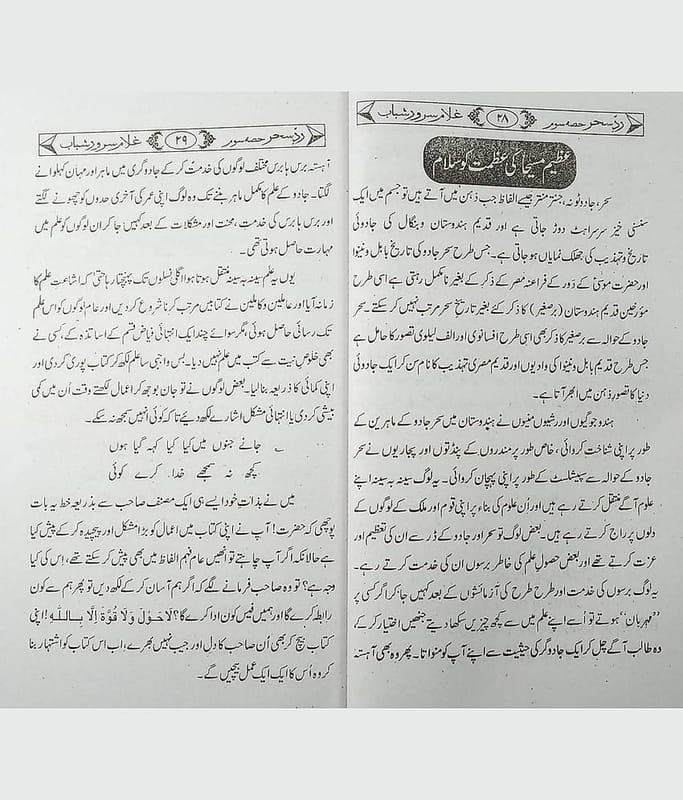 ردِّ سحر حصہ سوم ۲۸ غلام سرور شباب
عظیم مسیحا کی عظمت کو سلام
سحر، جادو ٹونہ، جنتر منتر جیسے الفاظ جب ذہن میں آتے ہیں تو جسم میں ایک
سنسنی خیز سرسراہٹ دوڑ جاتی ہے اور قدیم ہندوستان و بنگال کی جادوئی
تاریخ و تہذیب کی جھلک نمایاں ہو جاتی ہے۔ جس طرح سحر جادو کی تاریخ بابل و نینوا
اور حضرت موسیٰؑ کے زور کے فراعنہ مصر کے ذکر کے بغیر نا مکمل رہتی ہے اسی طرح
مؤرخین قدیم ہندوستان (برصغیر) کا ذکر کئے بغیر تاریخِ سحر مرتب نہیں کر سکتے۔ سحر
جادو کے حوالہ سے برصغیر کا ذکر بھی اسی طرح افسانوی اور الف لیلوی تصور کا حامل ہے
جس طرح قدیم بابل و نینوا کی وادیوں اور قدیم مصری تہذیب کا نام سن کر ایک جادوئی
دنیا کا تصور ذہن میں ابھر آتا ہے۔
ہندو جوگیوں اور رشیوں منیوں نے ہندوستان میں سحر جادو کے ماہرین کے
طور پر اپنی شناخت کروائی، خاص طور پر مندروں کے پنڈتوں اور پجاریوں نے سحر
جادو کے حوالہ سے سپیشلسٹ کے طور پر اپنی پہچان کروائی۔ یہ لوگ سینہ بہ سینہ اپنے
علوم آگے منتقل کرتے رہے ہیں اور اُن علوم کی بناء پر اپنی قوم اور ملک کے لوگوں کے
دلوں پر راج کرتے رہے ہیں۔ بعض لوگ تو سحر اور جادو کے ڈر سے ان کی تعظیم اور
عزت کرتے تھے اور بعض حصول علم کی خاطر برسوں ان کی خدمت کرتے رہے۔
یہ لوگ برسوں کی خدمت اور طرح طرح کی آزمائشوں کے بعد کہیں جا کر اگر کسی پر
"مہربان" ہوتے تو اُسے اپنے علم میں سے کچھ چیزیں سکھا دیتے جنھیں اختیار کر کے،
وہ طالب آگے چل کر ایک جادوگر کی حیثیت سے اپنے آپ کو منواتا۔ پھر وہ بھی آہستہ
ردِّ سحر حصہ سوم ۲۹ غلام سرور شباب
آہستہ برس ہا برس مختلف لوگوں کی خدمت کر کے جادوگری میں ماہر اور مہان کہلوانے
لگتا۔ جادو کے علم کا مکمل ماہر بننے تک وہ لوگ اپنی عمر کی آخری حدوں کو چھونے لگتے
اور برس ہا برس کی خدمت، محنت اور مشکلات کے بعد کہیں جا کر ان لوگوں کو علم میں
مہارت حاصل ہوتی تھی۔
یوں یہ علم سینہ بہ سینہ منتقل ہوتا ہوا اگلی نسلوں تک پہنچتا رہا حتیٰ کہ اشاعتِ علم کا
زمانہ آیا اور عاملین و کاملین نے کتابیں مرتب کرنا شروع کر دیں اور عام لوگوں کو اس علم
تک رسائی حاصل ہوئی، مگر سوائے چند ایک انتہائی فیاض قسم کے اساتذہ کے، کسی نے
بھی خلوصِ نیت سے کتب میں علم نہیں دیا۔ بس واجبی سا علم لکھ کر کتاب پوری کر دی اور
اپنی کمائی کا ذریعہ بنا لیا۔ بعض لوگوں نے تو جان بوجھ کر اعمال لکھتے وقت اُن میں کمی
بیشی کر دی یا انتہائی مشکل اشارے لکھ دیئے تاکہ کوئی انہیں سمجھ نہ سکے۔
؂ جانے جنوں میں کیا کیا کہہ گیا ہوں
کچھ نہ سمجھے خدا کرے کوئی
میں نے بذاتِ خود ایسے ہی ایک مصنف صاحب سے بذریعہ خط یہ بات
پوچھی کہ حضرت! آپ نے اپنی کتاب میں اعمال کو بڑا مشکل اور پیچیدہ کر کے پیش کیا
ہے حالانکہ اگر آپ چاہتے تو اُنھیں عام فہم الفاظ میں بھی پیش کر سکتے تھے، اِس کی کیا
وجہ ہے؟ تو وہ صاحب فرمانے لگے کہ اگر ہم آسان کر کے لکھ دیں تو پھر ہم سے کون
رابطہ کرے گا اور ہمیں فیس کون ادا کرے گا؟ لَا حَوْلَ وَلَا قُوَّةَ اِلَّا بِاللّٰهِ! اپنی
کتاب بیچ کر بھی اُن صاحب کا دل اور جیب نہیں بھرے، اب اس کتاب کو اشتہار بنا
کر وہ اُس کا ایک ایک عمل بیچیں گے۔